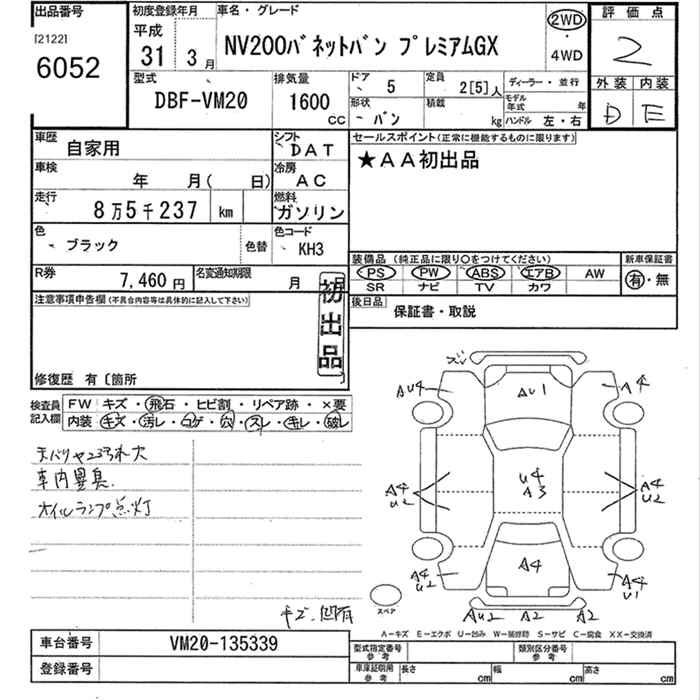 出品番号
[2122]
6052
初度登録年月
平成
31 3月
車名・グレード
NV200バネットバン プレミアムGX
2WD
・
4WD
評価点
2
外装 内装
D E
型式
DBF-VM20
排気量
1600
CC
ドア
5
定員
2[5]人
形状
バン
積載
kg
ディーラー・並行
モデル年式 年
ハンドル 左・右
車歴
自家用
シフト
DAT
車検
年 月( 日)
冷房
AC
走行
8万5千237 km
燃料
ガソリン
色
ブラック
色替
色コード
KH3
セールスポイント(正常に機能するものに限ります)
★AA初出品
装備品(純正品に限り〇をつけてください)
PS PW ABS エアB AW
SR ナビ TV カワ
新車保証書
有・無
R券
7,460円
名変通知期限
月
初出品
後日品
保証書・取説
注意事項申告欄(不具合内容等は具体的に記入して下さい)
修復歴 有〔箇所 〕
検査員記入欄
FW キズ・飛石・ヒビ割・リペア跡・×要
内装 キズ・汚レ・コゲ・穴・スレ・キレ・破レ
天バリヤ23汚れ大
車内異臭
オイルランプ点灯
キズ、凹有
ズレ
AU4
AU1
A4
U4
A3
A4
U2
A4
U2
A4
U2
A4
A4
U1
AU2 A2 A2
スペア
A-キズ E-エクボ U-凹み W-補修跡 S-サビ C-腐食 XX-交換済
車台番号
VM20-135339
登録番号
型式指定番号
参考
類別区分番号
参考
車庫証明用
参考
長さ cm
幅 cm
高さ cm